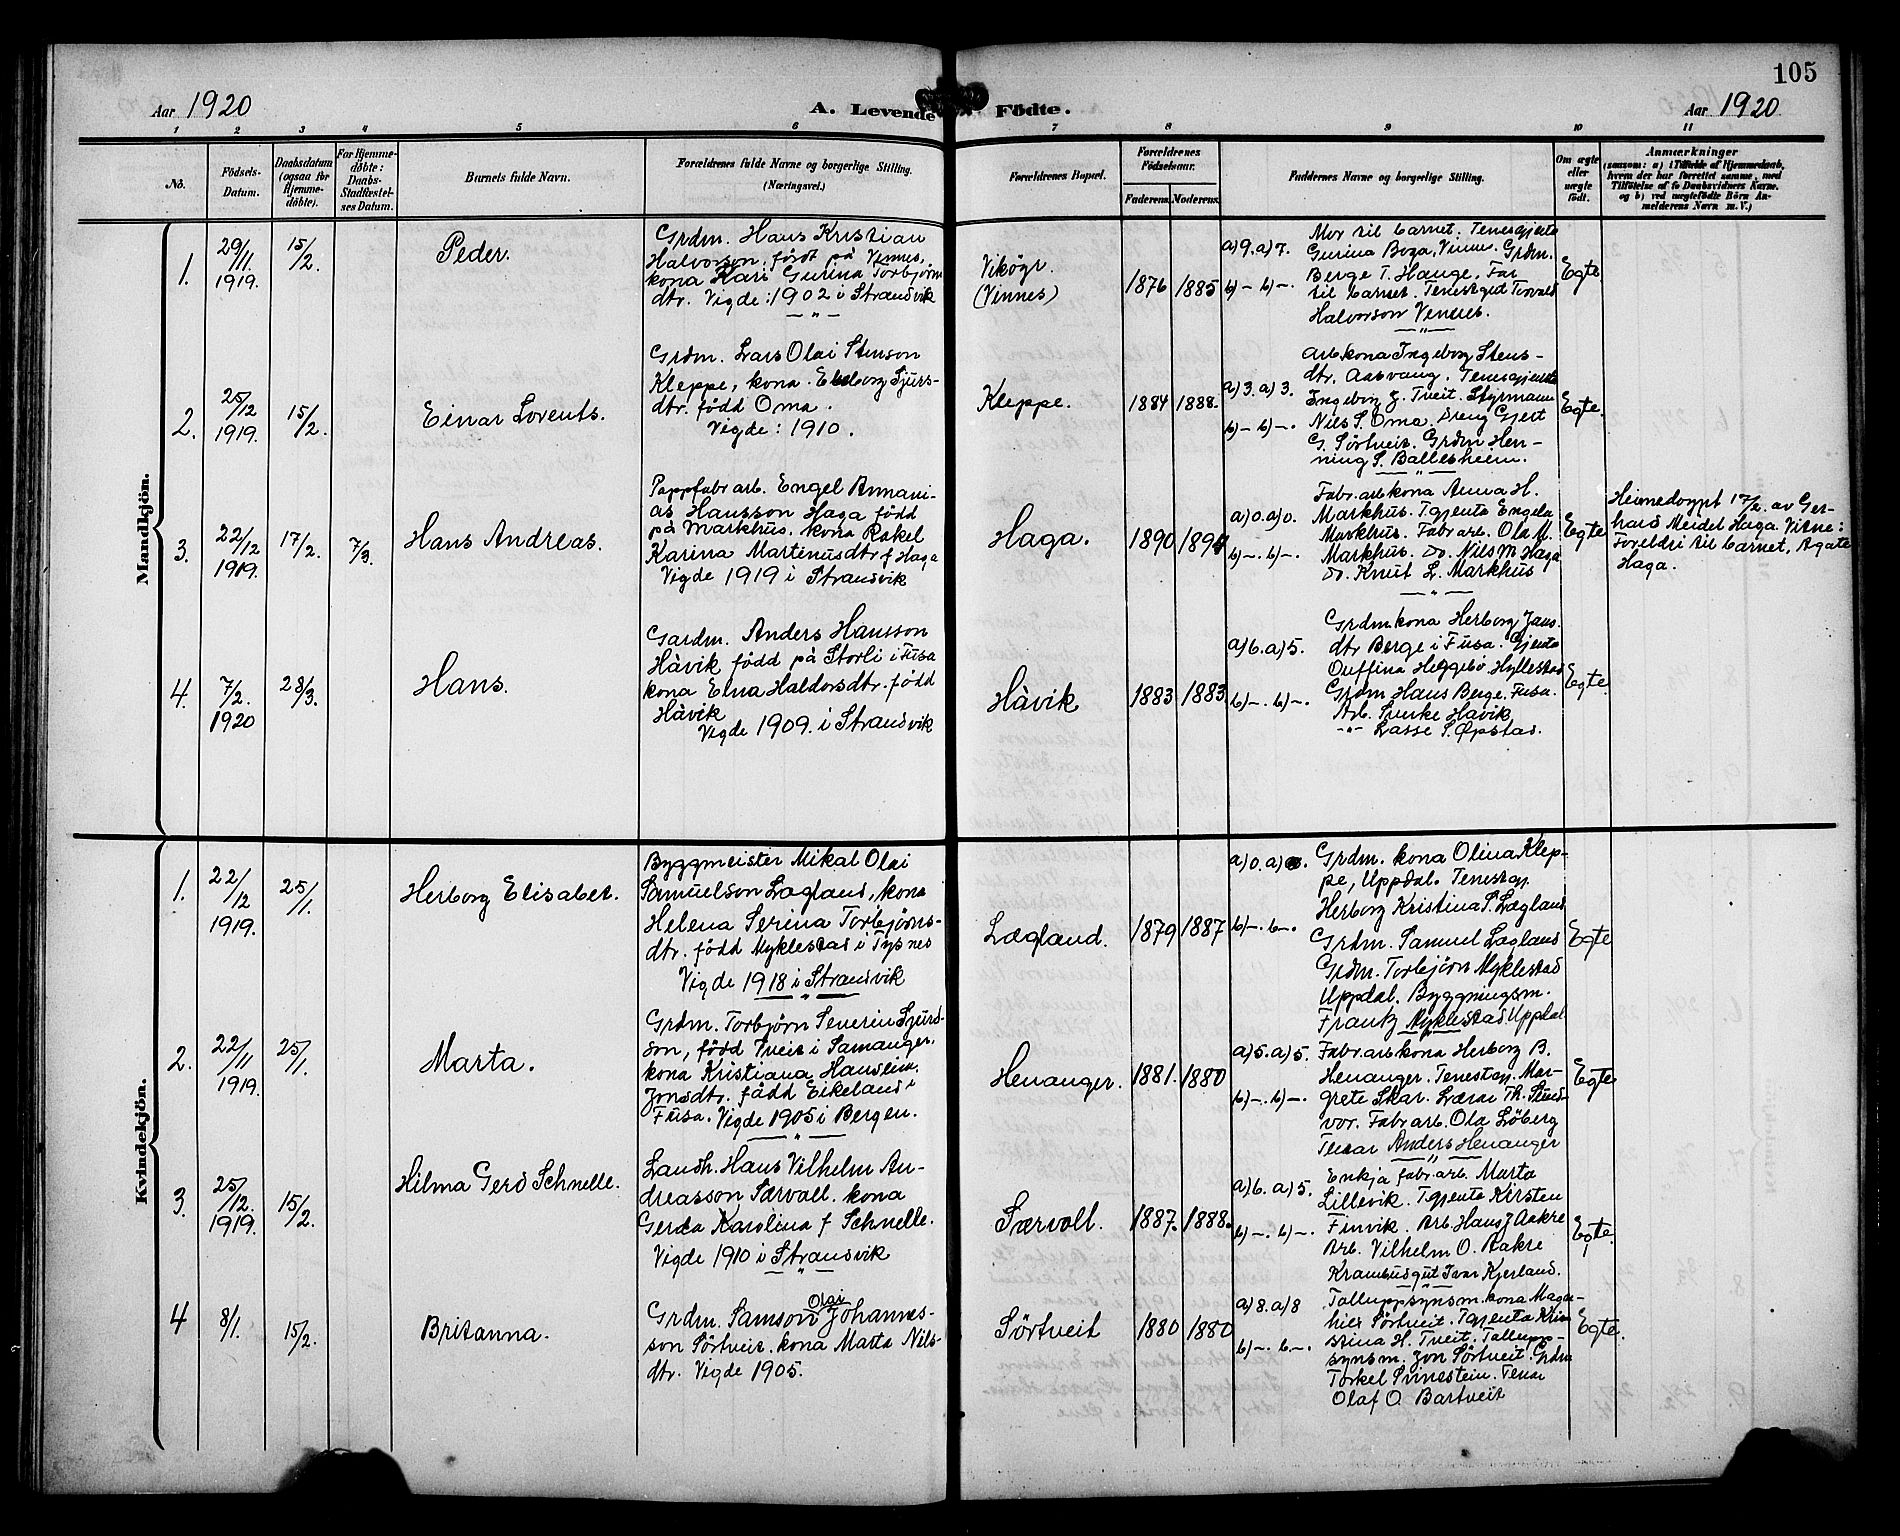 105
Aar 1920
A. Levende Födte.
Aar 1920
1 2 3 4 5 6 7 8 9 10 11
No.
Födsels-
Datum.
Daabsdatum
(ogsaa for
Hjemme-
döbte).
For Hjemme-
döbte:
Daabs-
Stadfæstel-
ses Datum.
Barnets fulde Navn.
Forældrenes fulde Navne og borgerlige Stilling.
(Næringsvei.)
Forældrenes Bopæl.
Forældrenes
Födselsaar.
Faderens.
Moderens.
Faddernes Navne og borgerlige Stilling.
Om ægte
eller
uægte
födt.
Anmærkninger
(saasom: a) i Tilfælde af Hjemmedaab,
hvem der har forrettet samme, med
Tilföielse af to Daabsvidners Navne,
og b) ved uægtefödte Börn An-
melderens Navn m. V.)
Mandkjön.
1.
29/11
1919.
15/2.
Peder.
Grdm. Hans Kristian
Halvorson, födt på Vinnes,
kona Kari Gurina Torbjørns
dtr. Vigde: 1902 i Strandvik
Vikøyr.
(Vinnes)
1876
1885
a) 9. a) 7.
b) – b) –
Mor til barnet. Tenesgjenta
Gurina Boga, Vinnes. Grdm.
Berge T. Hauge. Far
til barnet. Tenestgut Torvald
Halvorson Vinnes.
Egte
2.
25/12
1919.
15/2.
Einar Lorents.
Grdm. Lars Olai Stenson
Kleppe, kona Elleborg Sjurs-
dtr. född Oma.
Vigde: 1910.
Kleppe.
1884
1888.
a) 3. a) 3.
b) – b) –
Arb. kona Ingeborg Stens-
dtr. Aasvang. Tenesgjenta
Ingeborg J. Tveit. Styrmann
Nils S. Oma. Dreng Gjert
G. Sørtveit. Grdm Hen-
ning S. Ballesheim.
Egte.
3.
22/12
1919.
17/2.
7/3.
Hans Andreas.
Pappfabr.arb. Engel Annani-
as Hansson Haga född
på Markhus. kona Rakel
Karina Martinusdtr f Haga
Vigde 1919 i Strandvik
Haga.
1890
1894
a) 0. a) 0.
b) –. b) –.
Fabr.arb kona Anna H.
Markhus. Tgjenta Engela
Markhus. Fabr arb. Ola M.
Markhus. Do. Nils M Haga
Do. Knut L. Markhus
Egte
Heimedøypt 17/2. av Ger-
hard Meidel Haga. Vitne:
Foreldri til barnet, Agate
Haga.
4.
7/2.
1920
28/3.
Hans.
Gardm. Anders Hansson
Håvik född på Storli i Fusa
kona Elna Haldorsdtr. född
Håvik
Vigde 1909. i Strandvik
Håvik
1883
1883
a) 6. a) 5.
b) –. b) –.
Grdm.kona Herborg Jans.
dtr Berge i Fusa. Gjenta
Heggebø Hyllestad
Grdm Hans Berge. Fusa.
Arb. Sverke Håvik
-"- Lasse S. Øpstad.
Egte.
Kvindekjön.
1.
22/12
1919.
25/1.
Herborg Elisabet.
Byggmeister Mikal Olai
Samuelson Lægland, kona
Helena Serina Torbjørns-
dtr. född Myklestad i Tysnes
Vigde 1918 i Strandvik
Lægland.
1879
1887
a) 0. a) 0.
b) –. b –.
Grdm. kona Olina Klep-
pe, Uppdal. Tenestgj.
Herborg Kristina S. Lægland
Grdm. Samuel Lægland
Grdm. Torbjørn Myklestad
Uppdal. Byggningsm.
Frantz Myklestad Uppdal
Egte
2.
22/11
1919.
25/1.
Marta.
Grdm. Torbjørn Severin Sjurd-
son, född Tveit i Samanger,
kona Kristiana Hanslina
Jonsdtr. född Eikeland i
Fusa. Vigde 1905 i Bergen.
Henanger.
1881.
1880
a) 5. a) 5.
b) –. b) –.
Fabr. arb kona Herborg B.
Henanger. Tenestgj. Mar-
grete Skar. Lærar Th. Stend-
vor. Fabr arb. Ola Løberg
Tenar Anders Henanger
Egte
3.
25/12.
1919.
15/2.
Hilma Gerd Schnelle.
Landh. Hans Vilhelm An-
dreasson Særvoll. kona
Gerda Karolina f Schnelle.
Vigde 1910 i Strandvik
Særvoll.
1887.
1888.
a) 6. a) 5.
b) –. b) –.
Enkja fabr. arb. Marta
Lillevik. Tgjenta Kirsten
Finvik. Arb. Hans J Aakre
Arb. Vilhelm O. Aakre
Krambudgut Ivar Kjerland.
Egte.
4
8/1.
15/2.
Britanna.
Grdm. Samson Olai Johannes-
son Sørtveit. kona Marta Nils-
dtr. Vigde 1905.
Sørtveit
1880
1880
a) 8. a) 8
b) –. b –.
Tolluppsynsm. kona Magn-
hild Sørtveit. Tgjenta Kris
stina H. Tveit. Tollupp-
synsm. Jon Sørtveit. Grdm
Torkel Svinestein. Tenar
Olaf O. Bartveit
Egte.